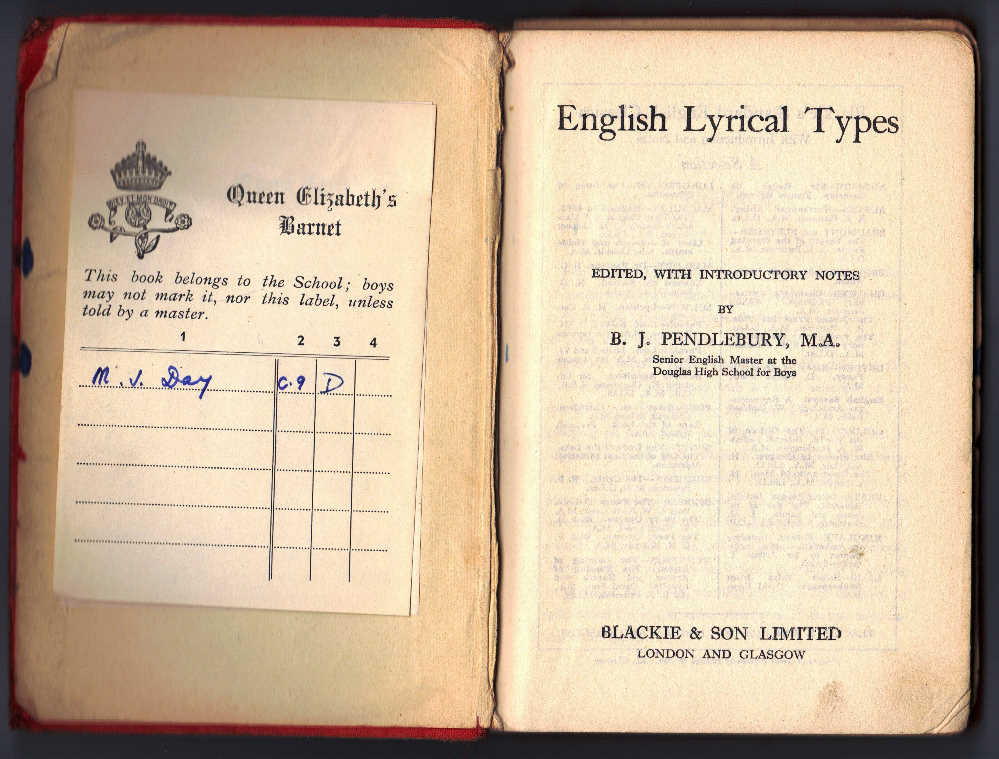 Queen Elizabeth's
Barnet
This book belongs to the School; boys
may not mark it, nor this label, unless
told by a master.
1 2 3 4
M. J. Day C.9 D
English Lyrical Types
EDITED, WITH INTRODUCTORY NOTES
BY
B. J. PENDLEBURY, M.A.
Senior English Master at the
Douglas High School for Boys
BLACKIE & SON LIMITED
LONDON AND GLASGOW